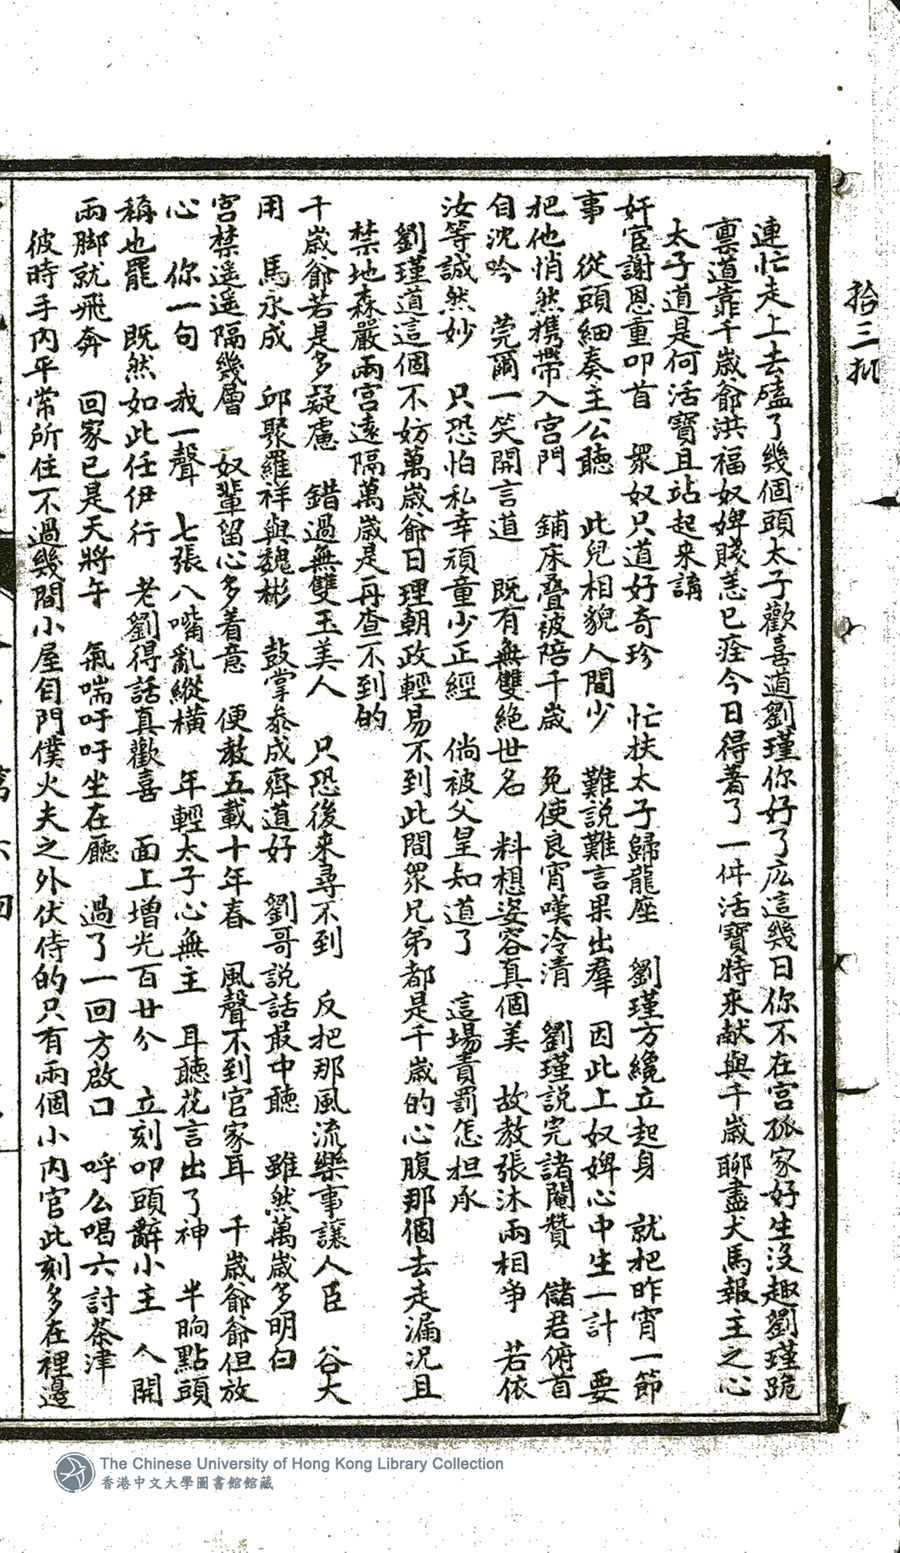 拾三抓
連忙走上去磕了幾個頭太子歡喜道劉瑾你好了広這幾日你不在宮孤家好生沒趣劉瑾跪
禀道靠千歲爺洪福奴婢賤恙已痊今日得著了一件活寶特來献與千歲聊盡犬馬報主之心
太子道是何活寶且站起來講
奸宦謝恩重叩首 衆奴只道好奇珍 忙扶太子歸龍座 劉瑾方纔立起身 就把昨宵一節
事 從頭細奏主公聽 此兒相貌人間少 難説難言果出羣 因此上奴婢心中生一計 要
把他悄然携帶入宮門 鋪床疊被陪千歲 免使良宵嘆冷清 劉瑾説完諸閹贊 儲君俯首
自沈吟 莞爾一笑開言道 既有無雙絕世名 料想姿容真個美 故教張沐兩相爭 若依
汝等誠然妙 只恐怕私幸頑童少正經 倘被父皇知道了 這場責罰怎担承
劉瑾道這個不妨萬歲爺日理朝政輕易不到此間衆兄弟都是千歲的心腹那個去走漏況且
禁地森嚴兩宮遠隔萬歲是再查不到的
千歲爺若是多疑慮 錯過無雙玉美人 只恐後來尋不到 反把那風流樂事讓人臣 谷大
用 馬永成 邱聚羅祥與魏彬 鼓掌泰成齊道好 劉哥説話最中聽 雖然萬歲多明白
宮禁遥遥隔幾層 奴輩留心多着意 便教五載十年春 風聲不到官家耳 千歲爺爺但放
心 你一句 我一聲 七張八嘴亂縱橫 年輕太子心無主 耳聽花言出了神 半晌點頭
稱也罷 既然如此任伊行 老劉得話真歡喜 面上增光百廿分 立刻叩頭辭小主 人開
兩脚就飛奔 回家已是天將午 氣喘吁吁坐在廳 過了一回方啟口 呼么喝六討茶津
彼時手內平常所住不過幾間小屋自門僕火夫之外伏侍的只有兩個小內官此刻多在裡邊
六回
The Chinese University of Hong Kong Library Collection
香港中文大學圖書館館藏